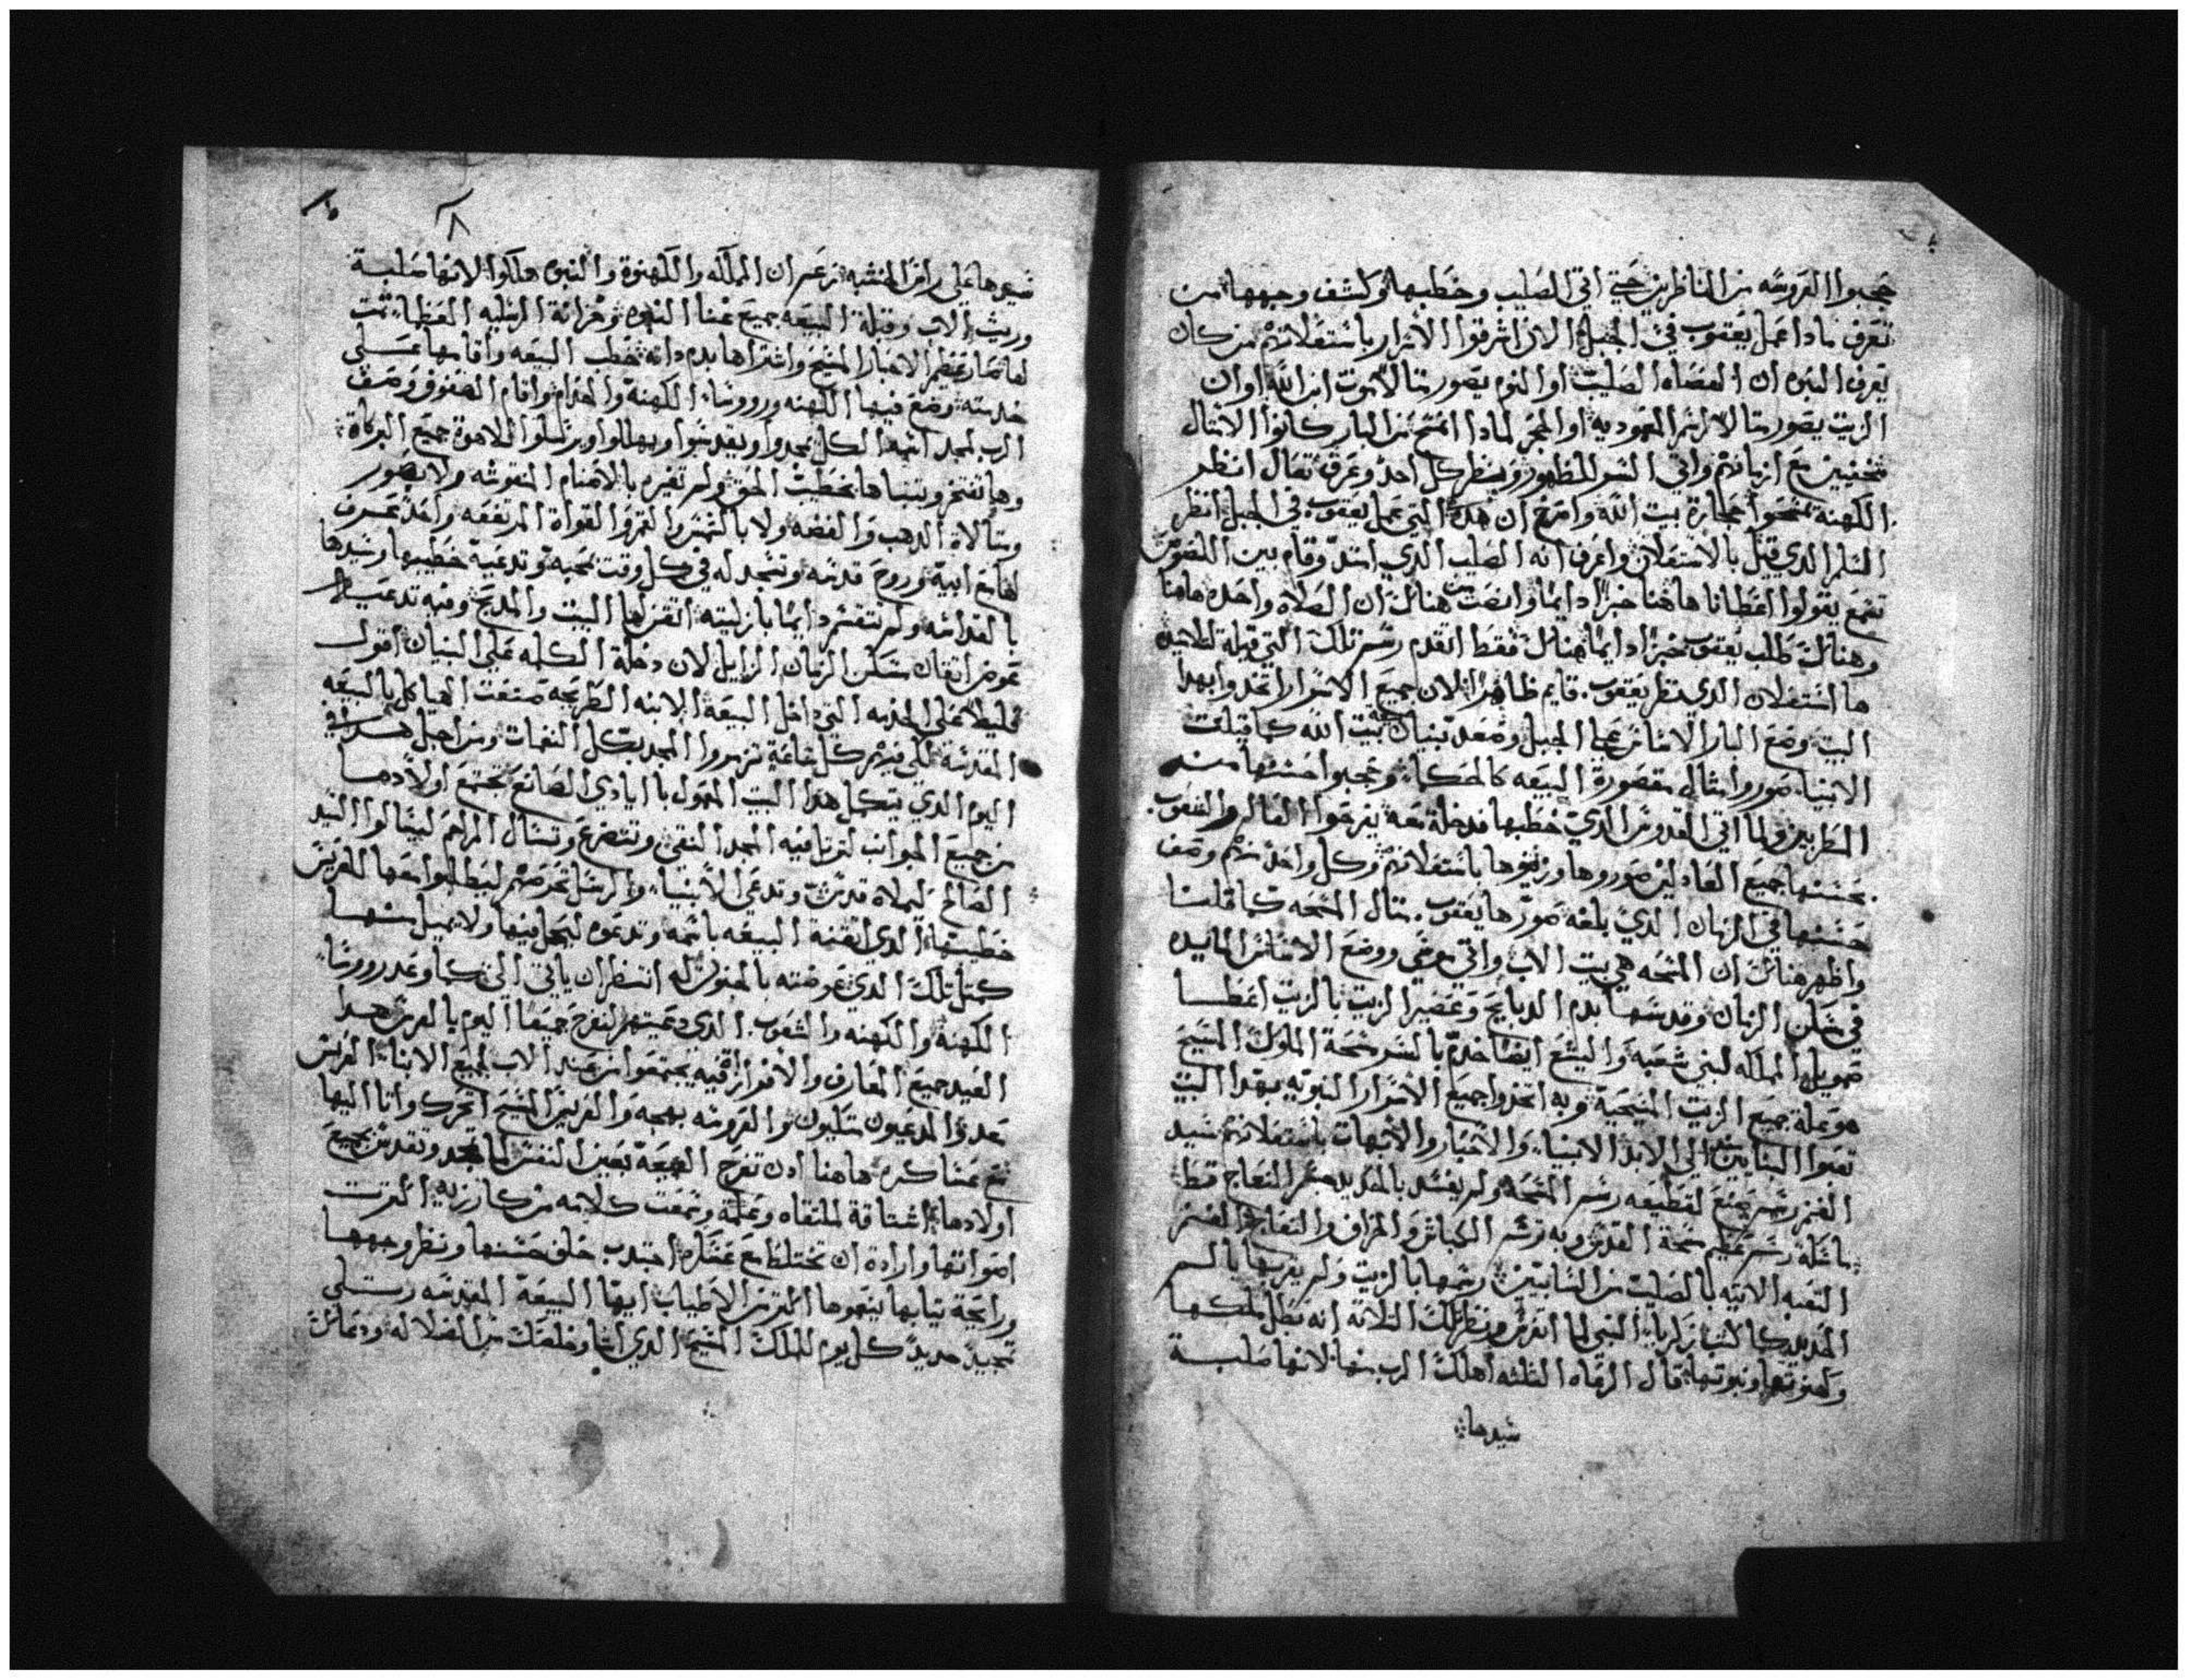 حجبوا العروسه من الناظرين حتي اتي الصليب وخطبها وكشف وجهها من
تعرف مادا عمل يعقوب في الجبل الا ان اشرقوا الاسرار باستعلانهم من كان
يعرف البتوه ان العصاه الصليب او النوم بصورة الموت ابن الله او ان
الزيت بصورة لرسم المعموديه او الحجر لمادا امتسح من البار كانوا الامثال
مختفيين مع ازمانهم واتي السر للظهور وينظر كل احد وعرف تعال انظر
الكهنة يمسحوا حجارة بيت الله وافرح ان هده التي عمل يعقوب في الجبل انظر
السلم الدي قيل بالاستعلان واعرف انه الصليب الدي امتد وقام بين اللصوص
تسمع يقولوا اعطانا هاهنا خبزا دايما وانصت هنالك ان الصلاه واحده هاهنا
وهنالك طلب يعقوب خبزا دايما هنالك فقط اتقدم رسم تلك التي قبلة للاجيد
ها استعلان الدي نظر يعقوب. قايم ظاهرا لان جميع الاسرار اتخدوا بهدا
البيت وضع البار الاساس علي الجبل وصعد بنيان بيت الله كما قبلت
الانبيا صوروا مثال مقصورة البيعه كالحكما وحجبوا حسنها منه
الطربين ولما اتي القدوس الدي خطبها مدخلة معه يفرحوا العالم والشعوب
بحسنها جميع العادلين صوروها وزينوها باستعلانهم وكل واحد منهم وصف
حسنها في الزمان الدي بلغه صورها يعقوب. مثال المسحه كما قلنا
واظهر هنالك ان المسحه هي بيت الاب واتي موسي ووضع الاساس المايده
في مسكن الزمان وقدسها بدم الدبايح وعصير الزيت بالزيت اعطا
صمويل المملكه لبني شعبه واليشع ايضا خدم بالسر مسحة الملوك المسيح
هو عملة جميع الزيت المسيحية وبه اتخدوا جميع الاسرار النبويه بهدا البيت
تعبوا البنايين الي الابد الانبيا والاحبار والاتبهات باستعلانهم سيد
الغنم رسم جميع لقطيعه رسم المسحه ولم يفسد بالحديد صغر النعاج قط
باشكله رسم عظيم مسحة القدس وبه ترسم الكباش والخراف والنعاج الغنم
النقيه الاتيه بالصليب من السابيين رسمها بالزيت ولم يقربها بالسم
الحديد كما كتب زكريا النبي لما اتفرس ونظر تلك التلاتة انه تبطل ملكها
وكهنوتها ونبوتها قال الرعاه التلته اهلك الرب منها لانها صلبة
سيدها
سيدها علي راس الخشبه نزعهم ان المملكه والكهنوة والنبوه هلكوا لانها صلبة
وريث الاب وقبلة البيعه جميع غنا النبوه وخزانة الرتبه العظما تمت
لها صار عظيم الاحبار المسيح واشتراها بدم داته خطب البيعه واقامها علي
خدمته وضع فيها الكهنه وروؤسا الكهنة والخدام واقام الصفوف وصف
الرب لمجد اسمه الكل يمجدوا ويقدسوا ويهللوا ويرتلوا للاهوة جميع البركاة
وها تفتخر وبنياها بخطب الحق ولم تغيره بالاصنام المنقوشه ولا بصور
وتماثلاة الدهب والفضه ولا بالشمس والقمر والقواة المرتفعه واحد تعرف
لها مع ابيه وروح قدسه وتسجد له في كل وقت بمحبه وتدعية خطيبها وسيدها
بالقداسه ولم تتفسر دايما بازليته اتقن لها البيت والمدبح وفيه تدعيه
عوض اتقان مسكن الزمان الزايل لان دخلة الكلمه علي البنيان اقول
قليلا علي الخدمه التي داخل البيعة الابنه الطريحه صنعت الهياكل بالبيعه
المقدسة لكي فيهم كل ساعة ترمروا المجد بكل النغمات ومن اجل هدا في
اليوم الدي يتكمل هدا البيت المهول بايادي الصانع تجتمع اولادها
من جميع الجوانب لترتل فيه المجد النقي وتتضرع وتسال المراحم ليسالوا السيد
الصالح ليملاه قدسه وتدعي الانبيا والرسل تحرضهم ليطلبوا معها العريس
خطيبها الدي اتقنة البيعه باسمه وتدعوه ليحل فيها ولا يميل منها
كمثل تلك الدي عوضته بالخنوله انتظر ان ياتي الي كما وعد روؤسا
الكهنة والكهنه والشعوب. الدي دعيتهم لنفرح جميعا اليوم بالعرس هدا
العيد جميع المعارف والافراز فيه يجتمعوا من عند الاب لجميع الابنا العريس
معد والمدعيون متكيون والعروسه بهجه والعريس المسيح اتحرك واتا اليها
مع عساكره هاهنا ادن تفرح البيعة بعين النفس لما تمجد وتقدس بجميع
اولادها اشتاقة لملتقاه وعلمة وسمعت كلامه من كاروزية القريب
اصواتها وارادة ان تختلط مع عسكره اجتدب خلف حسنها ونظر وجهها
ورايحة تيابها ينعوها اكتر من الاطياب ايها البيعة المقدسه رتلي
تمجيد جديد كل يوم للملك المسيح الدي اتا وخلصك من الضلاله ودعاك